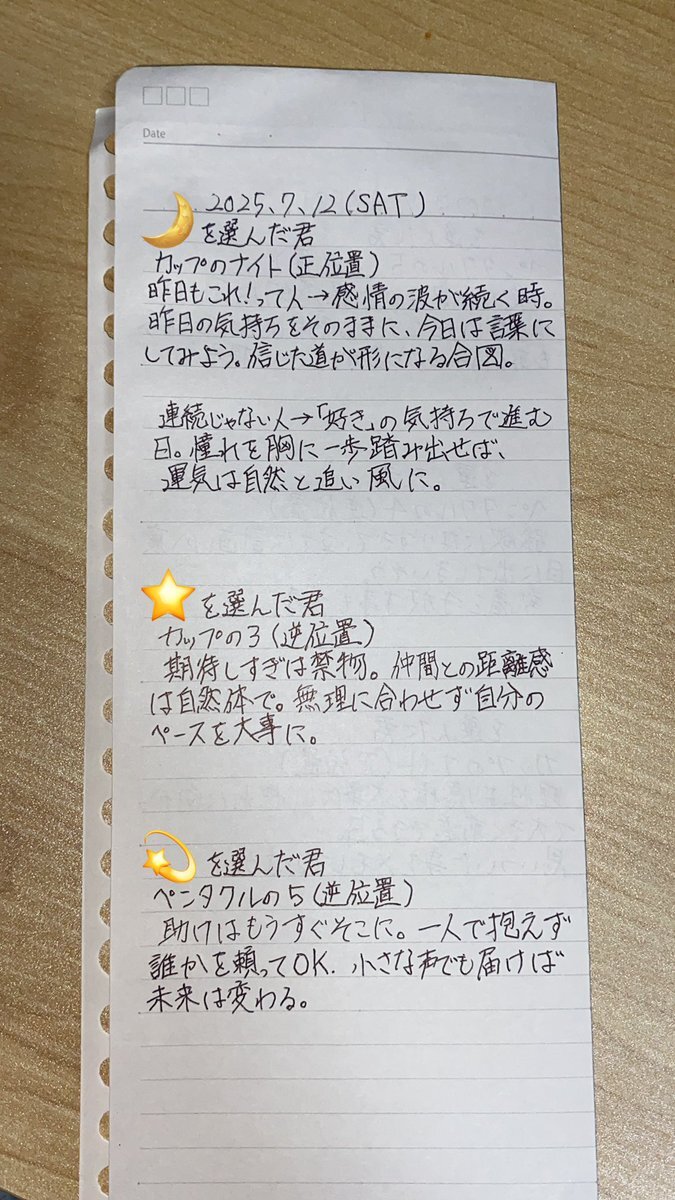 Date
2025.7.12(SAT)
🌙を選んだ君
カップのナイト(正位置)
昨日もこれ!って人→感情の波が続く時。
昨日の気持ちをそのままに、今日は言葉に
してみよう。信じた道が形になる合図。
連続じゃない人→「好き」の気持ちで進む
日。憧れを胸に一歩踏み出せば、
運気は自然と追い風に。
⭐を選んだ君
カップの3(逆位置)
期待しすぎは禁物。仲間との距離感
は自然体で。無理に合わせず自分の
ペースを大事に。
💫を選んだ君
ペンタクルの5(逆位置)
助けはもうすぐそこに。一人で抱えず
誰かを頼ってOK.小さな声でも届けば
未来は変わる。